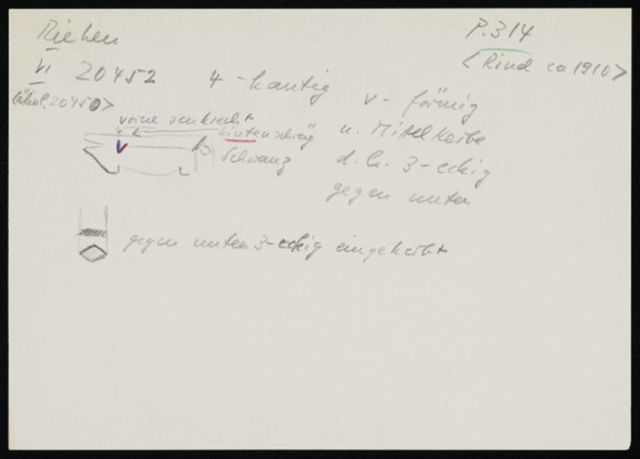 Riehen
P. 314
<Rind ca 1910>
VI 20452 4-kantig
(ähnl. 20450>
v-förmig
u. Mittelkerbe
d.h. 3-eckig
gegen unten
vorne senkrecht
hinten schräg
Schwanz
gegen unten 3-eckig eingekerbt